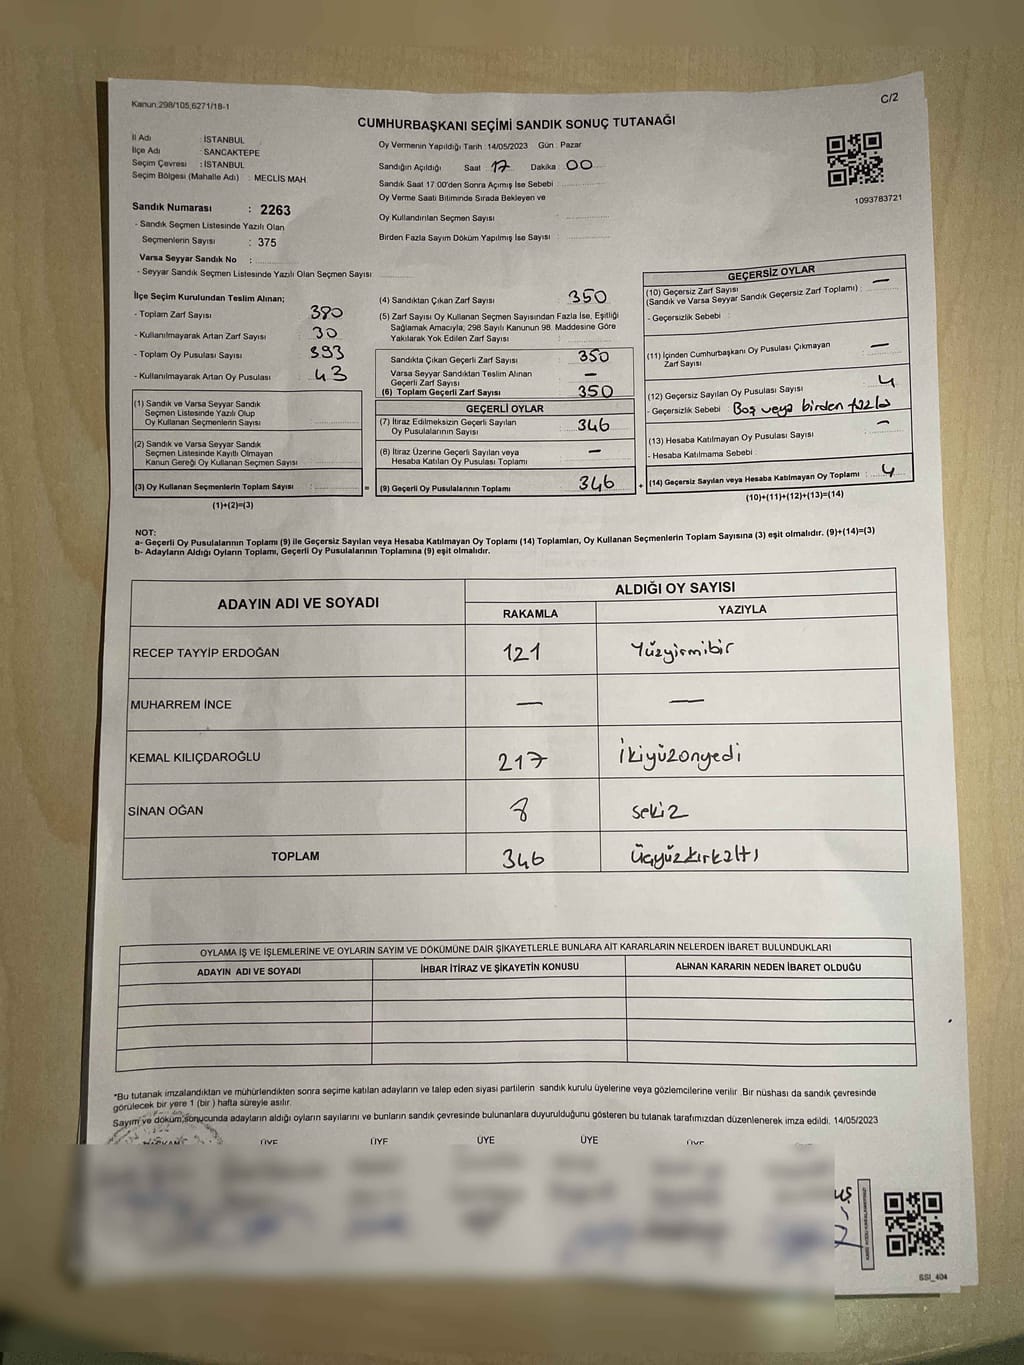 Kanun:298/105,6271/18-1
C/2
CUMHURBAŞKANI SEÇİMİ SANDIK SONUÇ TUTANAĞI
İl Adı : İSTANBUL
İlçe Adı : SANCAKTEPE
Seçim Çevresi : İSTANBUL
Seçim Bölgesi (Mahalle Adı) : MECLİS MAH.
Sandık Numarası : 2263
- Sandık Seçmen Listesinde Yazılı Olan
Seçmenlerin Sayısı : 375
Varsa Seyyar Sandık No :
- Seyyar Sandık Seçmen Listesinde Yazılı Olan Seçmen Sayısı
Oy Vermenin Yapıldığı Tarih : 14/05/2023 Gün : Pazar
Sandığın Açıldığı Saat : 17 Dakika : 00
Sandık Saat 17:00'den Sonra Açımış İse Sebebi
Oy Verme Saati Bitiminde Sırada Bekleyen ve
Oy Kullandırılan Seçmen Sayısı :
Birden Fazla Sayım Döküm Yapılmış İse Sayısı :
1093783721
İlçe Seçim Kurulundan Teslim Alınan;
- Toplam Zarf Sayısı : 380
- Kullanılmayarak Artan Zarf Sayısı : 30
- Toplam Oy Pusulası Sayısı : 393
- Kullanılmayarak Artan Oy Pusulası : 43
(1) Sandık ve Varsa Seyyar Sandık
Seçmen Listesinde Yazılı Olup
Oy Kullanan Seçmenlerin Sayısı :
(2) Sandık ve Varsa Seyyar Sandık
Seçmen Listesinde Kayıtlı Olmayan
Kanun Gereği Oy Kullanan Seçmen Sayısı
(3) Oy Kullanan Seçmenlerin Toplam Sayısı :
(1)+(2)=(3)
(4) Sandıktan Çıkan Zarf Sayısı : 350
(5) Zarf Sayısı Oy Kullanan Seçmen Sayısından Fazla İse, Eşitliği
Sağlamak Amacıyla; 298 Sayılı Kanunun 98. Maddesine Göre
Yakılarak Yok Edilen Zarf Sayısı :
Sandıkta Çıkan Geçerli Zarf Sayısı : 350
Varsa Seyyar Sandıktan Teslim Alınan
Geçerli Zarf Sayısı : —
(6) Toplam Geçerli Zarf Sayısı : 350
GEÇERLİ OYLAR
(7) İtiraz Edilmeksizin Geçerli Sayılan
Oy Pusulalarının Sayısı : 346
(8) İtiraz Üzerine Geçerli Sayılan veya
Hesaba Katılan Oy Pusulası Toplamı : —
= (9) Geçerli Oy Pusulalarının Toplamı : 346
GEÇERSİZ OYLAR
(10) Geçersiz Zarf Sayısı
(Sandık ve Varsa Seyyar Sandık Geçersiz Zarf Toplamı) : —
- Geçersizlik Sebebi :
(11) İçinden Cumhurbaşkanı Oy Pusulası Çıkmayan
Zarf Sayısı —
(12) Geçersiz Sayılan Oy Pusulası Sayısı 4
- Geçersizlik Sebebi : Boş veya birden fazla
(13) Hesaba Katılmayan Oy Pusulası Sayısı : —
- Hesaba Katılmama Sebebi :
+ (14) Geçersiz Sayılan veya Hesaba Katılmayan Oy Toplamı : 4
(10)+(11)+(12)+(13)=(14)
NOT:
a- Geçerli Oy Pusulalarının Toplamı (9) ile Geçersiz Sayılan veya Hesaba Katılmayan Oy Toplamı (14) Toplamları, Oy Kullanan Seçmenlerin Toplam Sayısına (3) eşit olmalıdır. (9)+(14)=(3)
b- Adayların Aldığı Oyların Toplamı, Geçerli Oy Pusulalarının Toplamına (9) eşit olmalıdır.
ADAYIN ADI VE SOYADI
ALDIĞI OY SAYISI
RAKAMLA YAZIYLA
RECEP TAYYİP ERDOĞAN 121 Yüzyirmibir
MUHARREM İNCE — —
KEMAL KILIÇDAROĞLU 217 İkiyüzonyedi
SİNAN OĞAN 8 sekiz
TOPLAM 346 Üçyüzkırkaltı
OYLAMA İŞ VE İŞLEMLERİNE VE OYLARIN SAYIM VE DÖKÜMÜNE DAİR ŞİKAYETLERLE BUNLARA AİT KARARLARIN NELERDEN İBARET BULUNDUKLARI
ADAYIN ADI VE SOYADI İHBAR İTİRAZ VE ŞİKAYETİN KONUSU ALINAN KARARIN NEDEN İBARET OLDUĞU
*Bu tutanak imzalandıktan ve mühürlendikten sonra seçime katılan adayların ve talep eden siyasi partilerin sandık kurulu üyelerine veya gözlemcilerine verilir. Bir nüshası da sandık çevresinde
görülecek bir yere 1 (bir) hafta süreyle asılır.
Sayım ve döküm sonucunda adayların aldığı oyların sayılarını ve bunların sandık çevresinde bulunanlara duyurulduğunu gösteren bu tutanak tarafımızdan düzenlenerek imza edildi. 14/05/2023
ÜYE ÜYE ÜYE ÜYE ÜYE
SSI_404